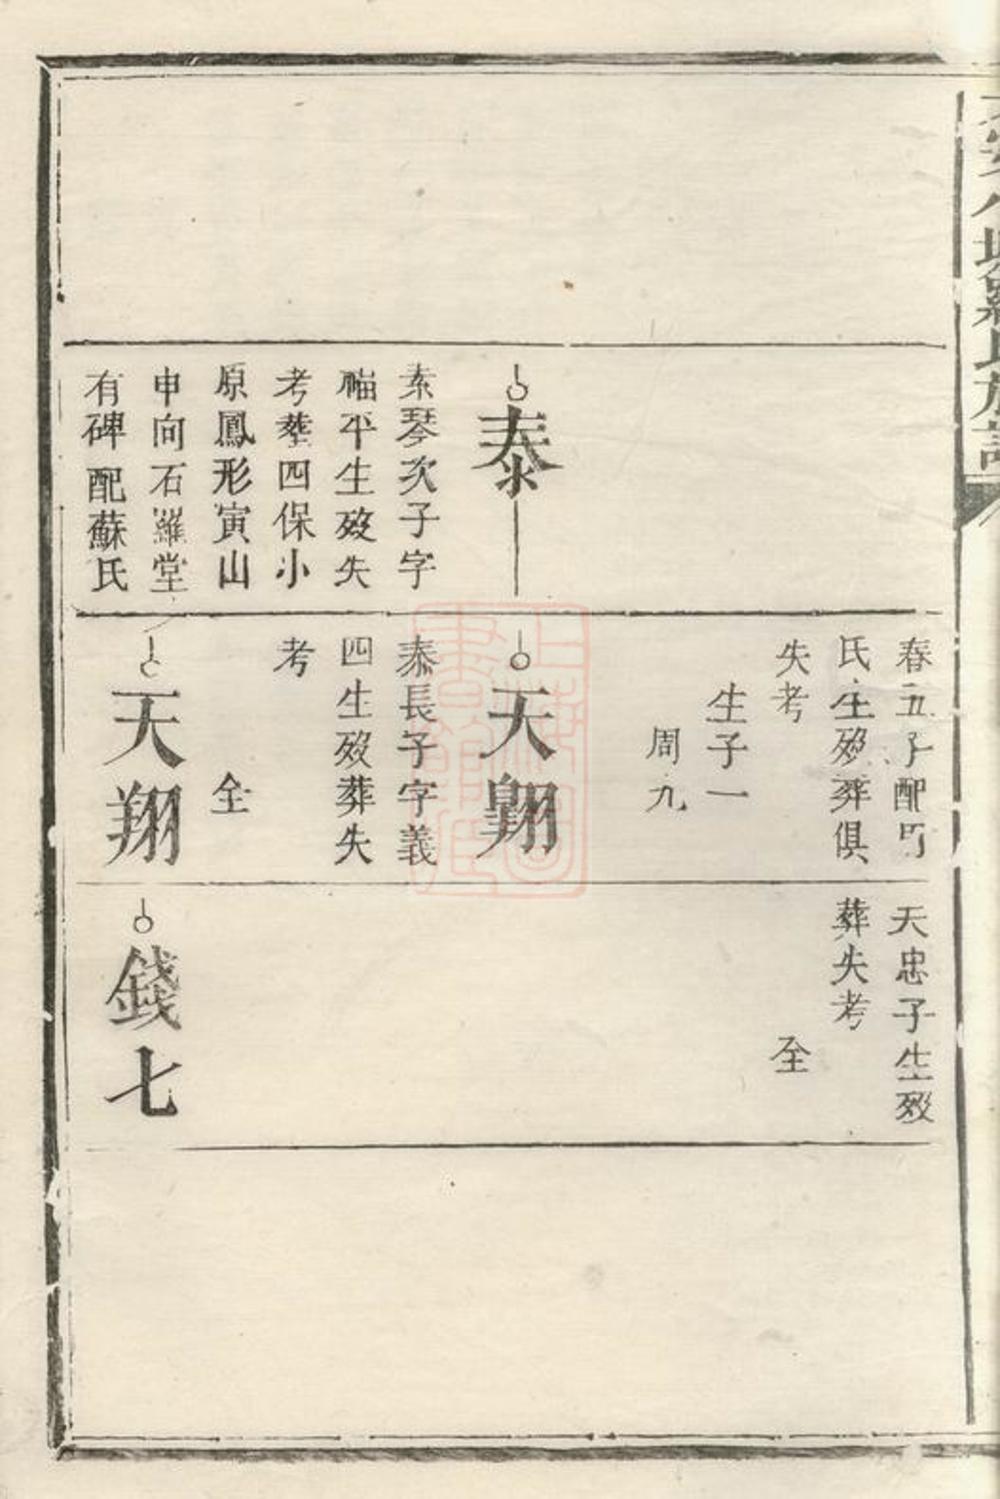 羅氏族譜
泰
素琴次子字
福平生歿失
考塟四保小
原鳳形寅山
申向石羅堂
有碑配蘇氏
春五子配
氏生歿葬俱
失考
生子一
周九
天翺
泰長子字義
四生歿葬失
考
仝
天翔
天忠子生歿
葬失考
仝
錢七
上海圖書館藏